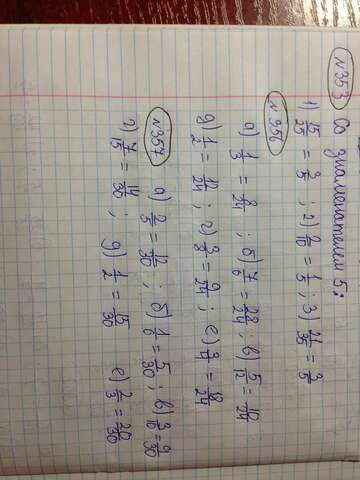 №353 Со знаменателем 5:
1) 15/25 = 3/5 ; 2) 2/10 = 1/5 ; 3) 21/35 = 3/5
№356
а) 1/3 = 8/24 ; б) 7/6 = 28/24 ; в) 5/12 = 10/24
д) 1/2 = 12/24 ; г) 3/8 = 9/24 ; е) 3/4 = 18/24
№357 а) 2/5 = 12/30 ; б) 1/6 = 5/30 ; в) 3/10 = 9/30
г) 7/15 = 14/30 ; д) 1/2 = 15/30 е) 2/3 = 20/30